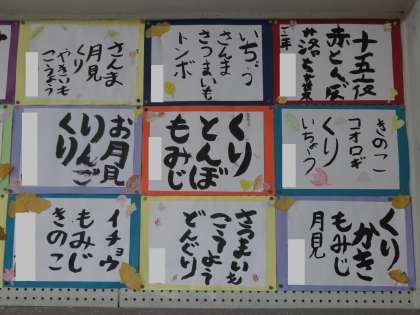 十五夜
赤とんぼ
落ち葉
いちょう
さんま
さつまいも
トンボ
さんま
月見
くり
やきいも
こうよう
きのこ
コオロギ
くり
いちょう
くり
とんぼ
もみじ
お月見
りんご
くり
くり
かき
もみじ
月見
さつまいも
こうよう
どんぐり
イチョウ
もみじ
きのこ